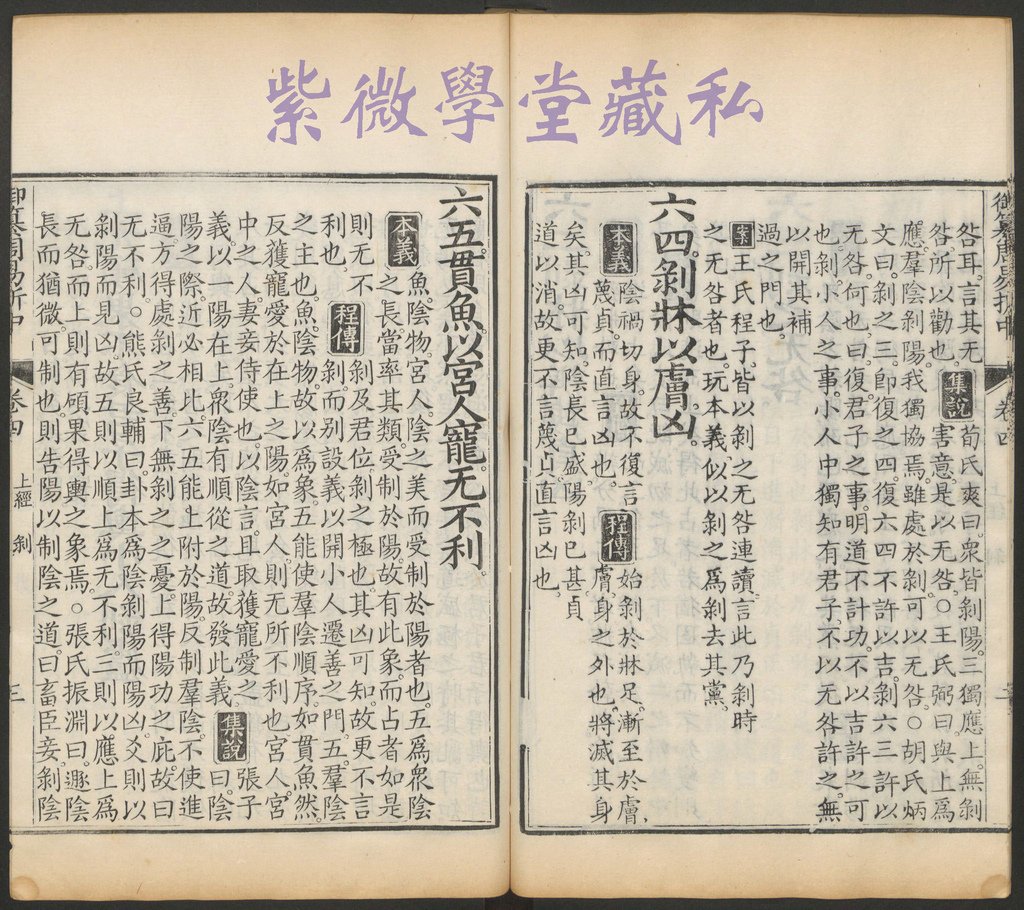 紫微學堂藏私
御纂周易折中 卷四 上經 剝 二
咎耳。言其无
咎所以勸也。
集說
荀氏爽曰。衆皆剝陽。三獨應上。無剝
害意。是以无咎。○王氏弼曰。與上爲
應。羣陰剝陽。我獨協焉。雖處於剝。可以无咎。○胡氏炳
文曰。剝之三。即復之四。復六四不許以吉。剝六三許以
无咎。何也。曰復君子之事。明道不計功。不以吉許之。可
也。剝小人之事。小人中獨知有君子。不以无咎許之。無
以開其補
過之門也。
案
王氏程子皆以剝之无咎連讀。言此乃剝時
之无咎者也。玩本義似以剝之爲剝去其黨。
六四。剝牀以膚凶。
本義
陰禍切身。故不復言
蔑貞。而直言凶也。
程傳
始剝於牀足。漸至於膚。
膚身之外也。將滅其身
矣。其凶可知。陰長已盛。陽剝已甚。貞
道以消。故更不言蔑貞。直言凶也。
六五。貫魚。以宮人寵。无不利。
本義
魚。陰物。宮人。陰之美而受制於陽者也。五爲衆陰
之長。當率其類受制於陽。故有此象。而占者如是。
則无不
利也。
程傳
剝及君位。剝之極也。其凶可知。故更不言
剝。而別設義以開小人遷善之門。五。羣陰
之主也。魚陰物。故以爲象。五能使羣陰順序。如貫魚然。
反獲寵愛於在上之陽。如宮人則无所不利也。宮人。宮
中之人。妻妾侍使也。以陰言。且取獲寵愛之
義。以一陽在上。衆陰有順從之道。故發此義。
集說
張子
曰。陰
陽之際。近必相比。六五能上附於陽。反制羣陰。不使進
逼。方得處剝之善。下無剝之之憂。上得陽功之庇。故曰
无不利。○熊氏良輔曰。卦本爲陰剝陽而陽凶。爻則以
剝陽而見凶。故五則以順上爲无不利。三則以應上爲
无咎。而上則有碩果得輿之象焉。○張氏振淵曰。遯陰
長而猶微。可制也。則告陽以制陰之道。曰畜臣妾。剝陰
御纂周易折中 卷四 上經 剝 三